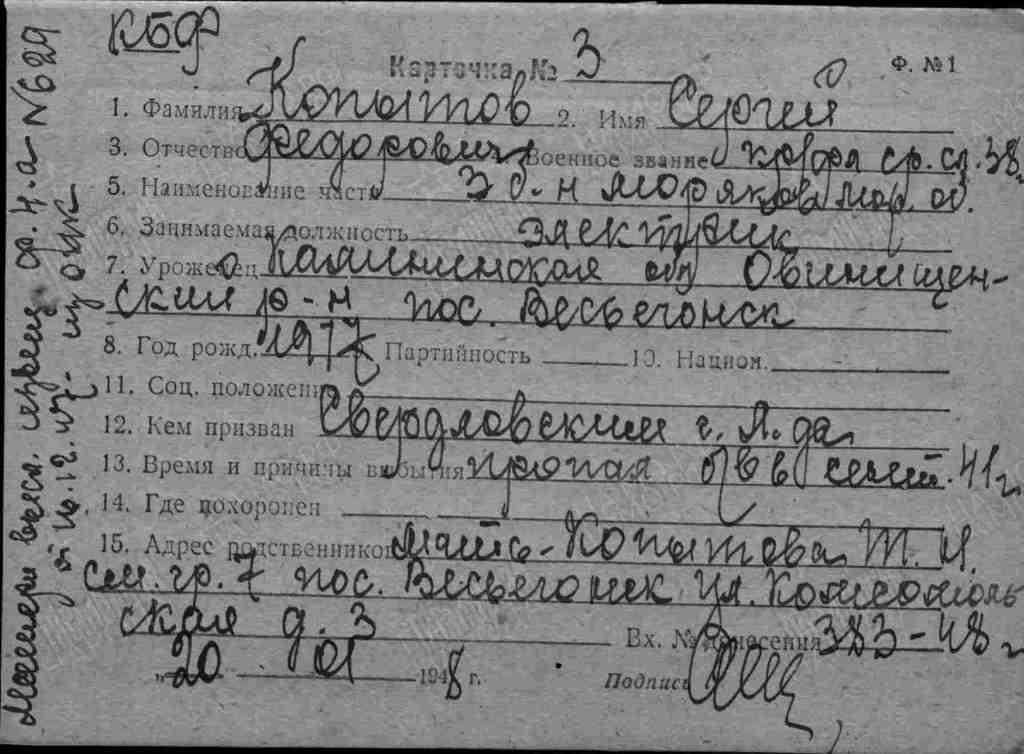 КБФ
Карточка № 3 Ф. №1
1. Фамилия Копытов 2. Имя Сергей
3. Отчество Федорович Военное звание кр-фл. ср. сл. 38 г.
5. Наименование части 3 б-н моряков Мор. об.
6. Занимаемая должность электрик
7. Уроженец Калининская обл Овинищен-
ский р-н пос. Весьегонск
8. Год рожд. 1917 Партийность 10. Национ.
11. Соц. положение
12. Кем призван Свердловским г. Л-да
13. Время и причины выбытия пропал б/в в сент. 41 г.
14. Где похоронен
15. Адрес родственников мать - Копытова Т. И.
см. гр. 7 пос. Весьегонск ул. Комсомоль
ская д. 3
Вх. № донесения 383-48 г
"20" 01 1948 г.
Подпись
ф. 4.а №629